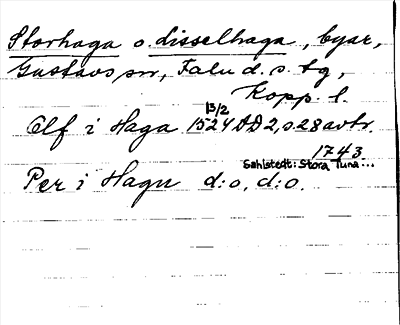 Storhaga o. disselhaga, byar,
Gustavs sn, Falu d. s. tg,
Kopp. l.
13/2
Olf i Haga 1524 DD 2, s. 28 avtr.
1743
Sahlstedt: Stora Tuna...
Per i Hagu d:o, d:o.